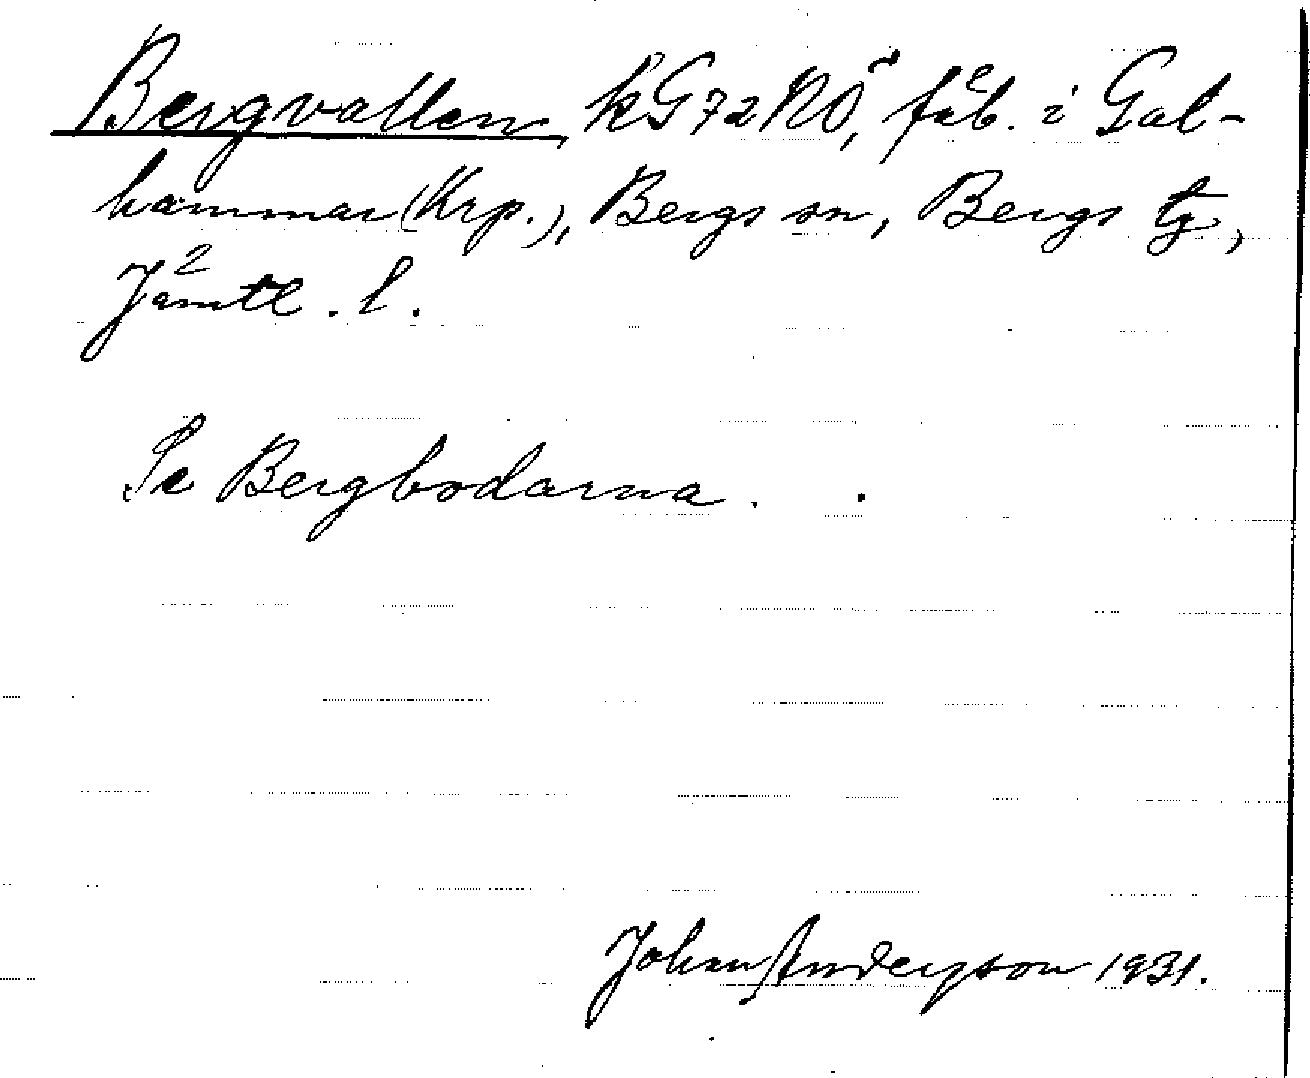 Bergvallen, kG72NÖ, fäb. i Gal-
hammar (Krp.), Bergs sn, Bergs tg,
Jämtl. l.
Se Bergbodarna.
Johan Anderzson 1931.